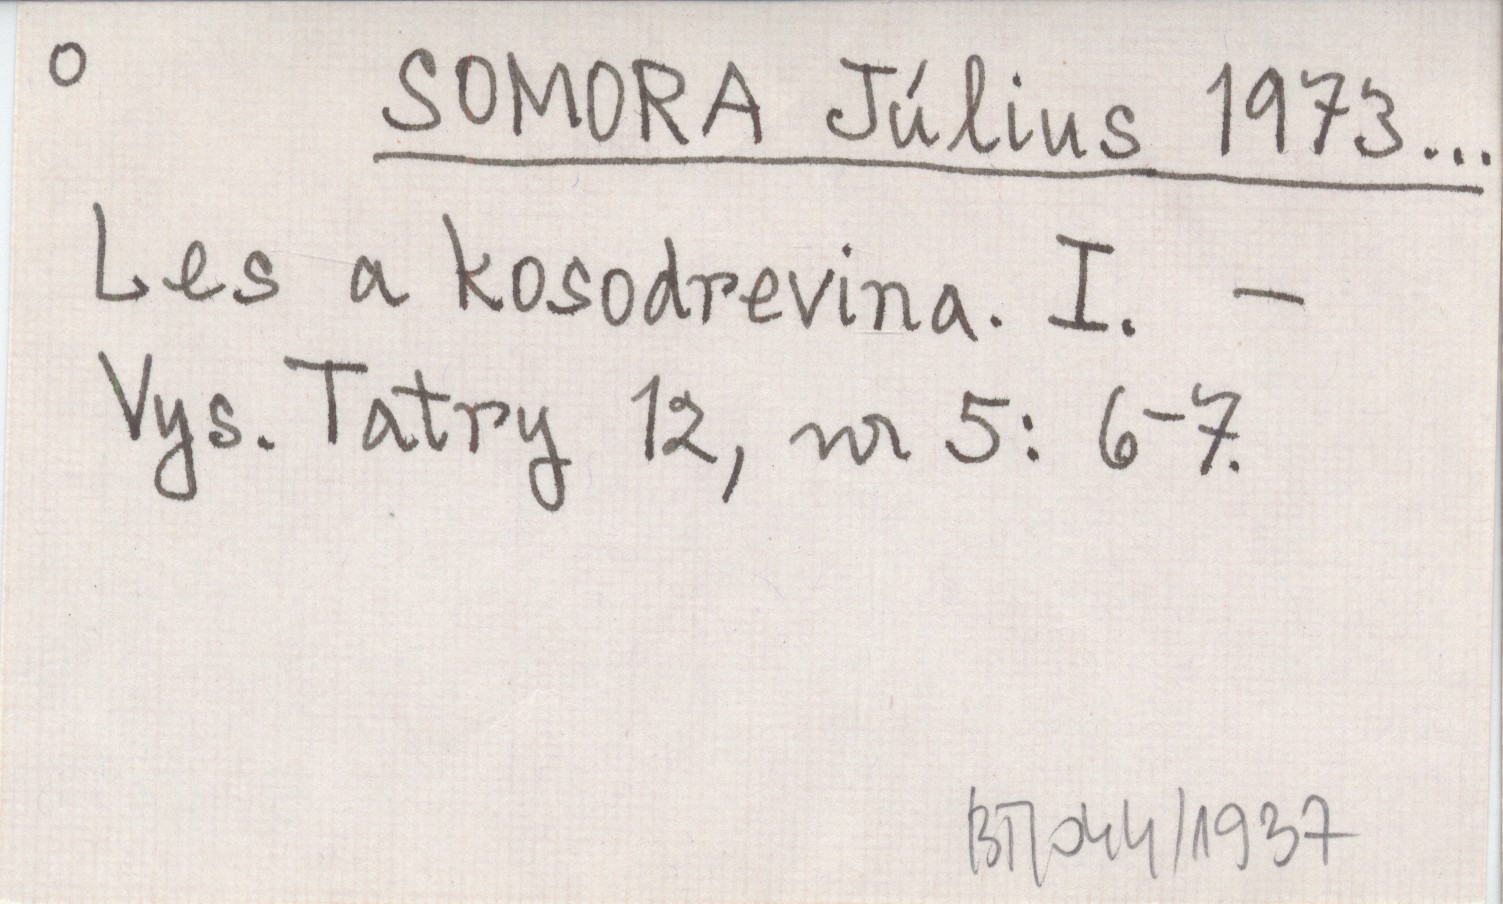 o
SOMORA Július 1973...
Les a kosodrevina. I. –
Vys. Tatry 12, nr 5: 6-7.
BT/044/1937